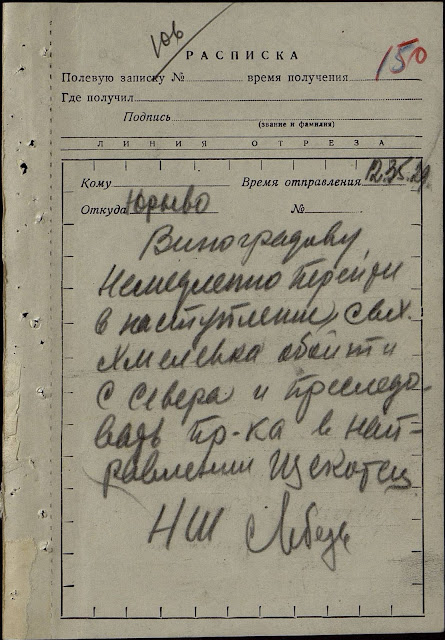 106
РАСПИСКА
150
Полевую записку № время получения
Где получил
Подпись
(звание и фамилия)
ЛИНИЯ ОТРЕЗА
Кому Время отправления
Откуда Юрьево №
Виноградову
Немедленно перейти
в наступление, свх.
Хмелевка обойти
с севера и преследо-
вать пр-ка в нап-
равлении Щекотец
НШ Лебедь